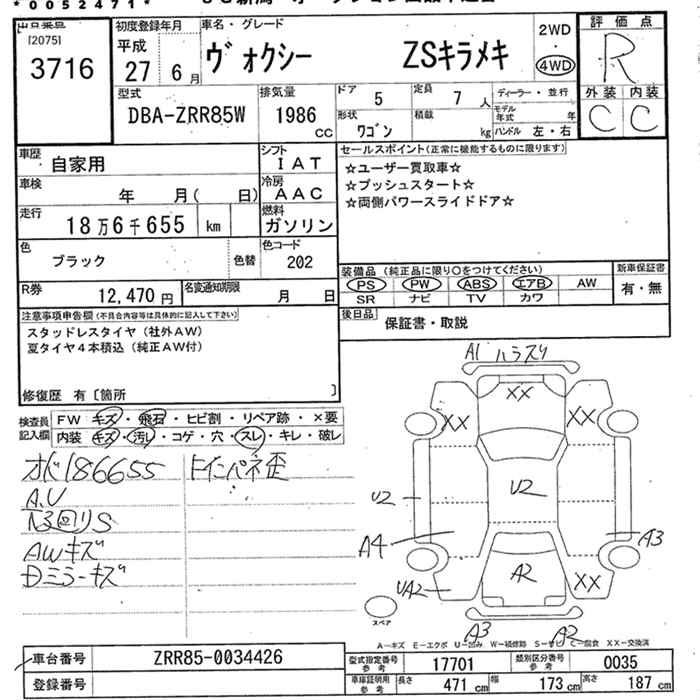 *0052471*
出品番号
[2075]
3716
初度登録年月
平成
27年 6月
車名・グレード
ヴォクシー ZSキラメキ
2WD
・
4WD
評価点
R
外装 内装
C C
型式
DBA-ZRR85W
排気量
1986 CC
ドア 5
定員 7人
形状 ワゴン
積載 kg
ディーラー・並行
モデル年式 年
ハンドル 左・右
車歴 自家用
シフト IAT
車検 年 月( 日)
冷房 AAC
走行 18万6千655 km
燃料 ガソリン
色 ブラック 色替
色コード 202
R券 12,470円
名変通知期限 月 日
セールスポイント(正常に機能するものに限ります)
☆ユーザー買取車☆
☆プッシュスタート☆
☆両側パワースライドドア☆
装備品(純正品に限り○をつけてください)
PS PW ABS エアB AW
SR ナビ TV カワ
新車保証書
有・無
後日品 保証書・取説
注意事項申告欄(不具合内容等は具体的に記入して下さい)
スタッドレスタイヤ(社外AW)
夏タイヤ4本積込(純正AW付)
修復歴 有〔箇所 〕
検査員記入欄
FW キズ・飛石・ヒビ割・リペア跡・×要
内装 キズ・汚レ・コゲ・穴・スレ・キレ・破レ
オド186655
A.U
N3回りS
AWキズ
Dミラーキズ
FインパネD歪
A1 ハラスリ
XX
XX XX
U2 U2
A4 A3
UA2 A2 XX
スペア
A3 A2
A-キズ E-エクボ U-凹み W-補修跡 S-サビ C-腐食 XX-交換済
車台番号 ZRR85-0034426
登録番号
型式指定番号 参考 17701
類別区分番号 参考 0035
車庫証明用 参考 長さ 471cm 幅 173cm 高さ 187cm